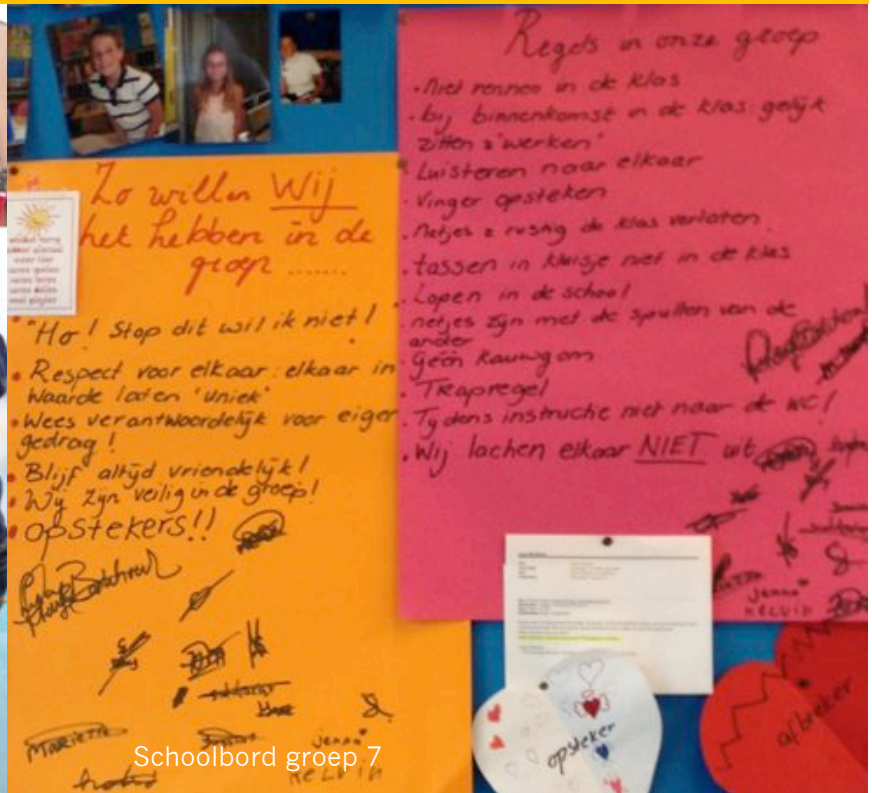 Zo willen Wij
het hebben in de
groep ......
"Ho! Stop dit wil ik niet!
Respect voor elkaar: elkaar in
waarde laten 'uniek'
Wees verantwoordelijk voor eigen
gedrag!
Blijf altijd vriendelijk!
Wij zijn veilig in de groep!
OPSTEKERS!!
MARIETTE
jenna
KELVIN
Schoolbord groep 7
Regels in onze groep
Niet rennen in de klas
bij binnenkomst in de klas: gelijk
zitten & 'werken'
Luisteren naar elkaar
Vinger opsteken
Netjes & rustig de klas verlaten
tassen in kluisje niet in de klas
Lopen in de school
netjes zijn met de spullen van de
ander
Géén kauwgom
Trapregel
Tijdens instructie niet naar de WC!
Wij lachen elkaar NIET uit
jenna
KELVIN
opsteker
afbreker